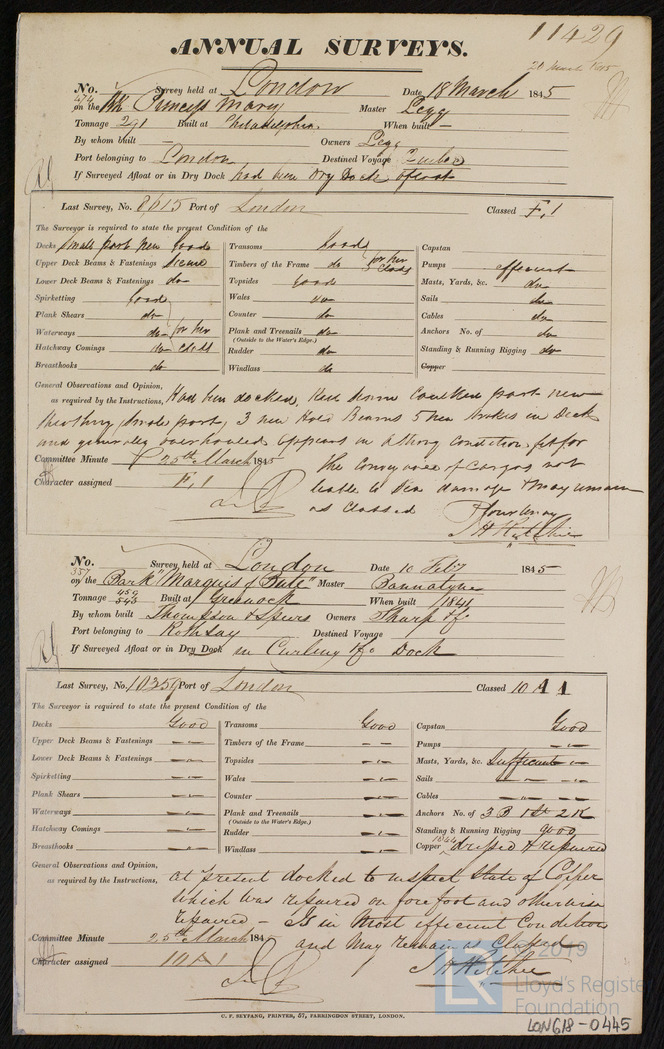 11429
ANNUAL SURVEYS.
21 March 1845
No. 474 Survey held at London Date 18 March 1845
on the Bk Princess Mary Master Legg
Tonnage 291 Built at Philadelphia When built —
By whom built — Owners Legg
Port belonging to London Destined Voyage Quebec
If Surveyed Afloat or in Dry Dock had been Dry Dock afloat
Last Survey, No. 8615 Port of London Classed F.1
The Surveyor is required to state the present Condition of the
Decks small part new good Transoms good Capstan
Upper Deck Beams & Fastenings Timbers of the Frame do Pumps efficient
Lower Deck Beams & Fastenings do Topsides good Masts, Yards, &c. do
Spirketting good Wales do Sails do
Plank Shears do Counter do Cables do
Waterways do Plank and Treenails do Anchors No. of do
(Outside to the Water's Edge.)
Hatchway Comings do Rudder do Standing & Running Rigging do
Breasthooks do Windlass do Copper
General Observations and Opinion, Had been docked, Keel down caulked part new
as required by the Instructions,
sheathing, small part, 3 new Hold Beams 5 new strakes in Deck
and generally overhauled appears in a strong condition fit for
Committee Minute 25th March 1845 the conveyance of cargos not
Character assigned F.1 liable to Sea damage & may remain
as classed
J H Ritchie
No. 357 Survey held at London Date 10 Feby 1845
on the Bark "Marquis of Bute" Master Bannatyne
Tonnage 459 543 Built at Greenock When built 1841
By whom built Thompson & Spiers Owners Sharp & Co
Port belonging to Rothsay Destined Voyage
If Surveyed Afloat or in Dry Dock in Curling & Co Dock
Last Survey, No. 10259 Port of London Classed 10 A 1
The Surveyor is required to state the present Condition of the
Decks Good Transoms Good Capstan Good
Upper Deck Beams & Fastenings — Timbers of the Frame — Pumps —
Lower Deck Beams & Fastenings — Topsides — Masts, Yards, &c. Sufficient
Spirketting — Wales — Sails —
Plank Shears — Counter — Cables —
Waterways — Plank and Treenails — Anchors No. of 3 B 1 St 2 K
(Outside to the Water's Edge.)
Hatchway Comings — Rudder — Standing & Running Rigging good
Breasthooks — Windlass — Copper 1844 dressed & repaired
General Observations and Opinion, at present docked to inspect state of Copper
as required by the Instructions, which was repaired on fore foot and otherwise
repaired — Is in Most efficient Condition
Committee Minute 25th March 1845 and May remain as Classed
Character assigned 10 A 1 J H Ritchie
C. F. SEYFANG, PRINTER, 57, FARRINGDON STREET, LONDON.
LR 2019
Lloyd's Register
Foundation
LON618-0445